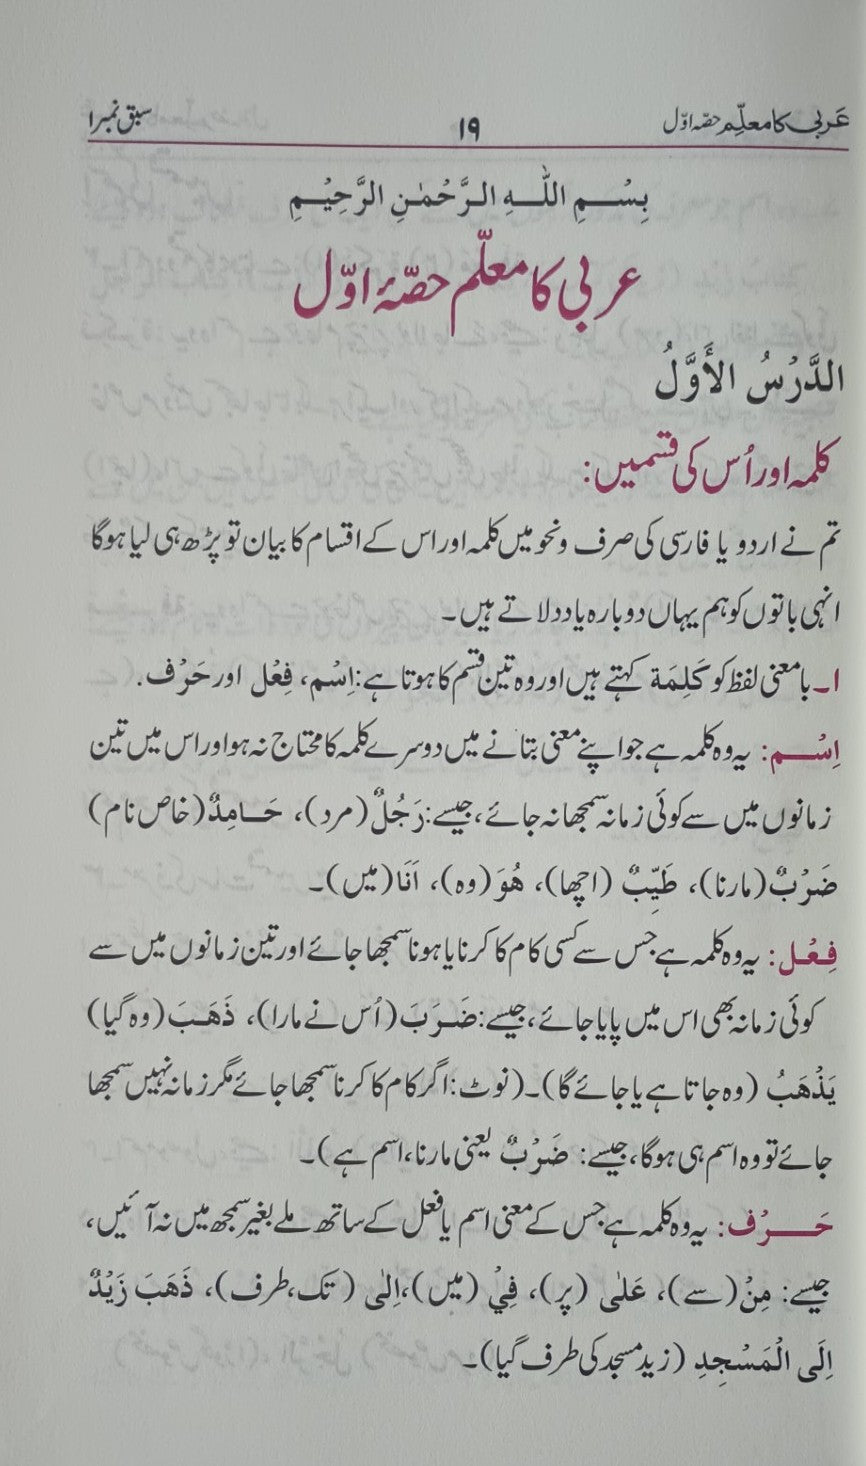 عَربی کا معلّم حصّہ اوّل ۱۹ سبق نمبر ۱
بِسْمِ اللّٰہِ الرَّحْمٰنِ الرَّحِیْمِ
عربی کا معلّم حصّۂ اوّل
الدَّرْسُ الأَوَّلُ
کلمہ اور اُس کی قسمیں:
تم نے اردو یا فارسی کی صرف ونحو میں کلمہ اور اس کے اقسام کا بیان تو پڑھ ہی لیا ہوگا
انہی باتوں کو ہم یہاں دوبارہ یاد دلاتے ہیں۔
۱۔ بامعنی لفظ کو کَلِمَة کہتے ہیں اور وہ تین قسم کا ہوتا ہے: اِسْم، فِعْل اور حَرْف.
اِسْم: یہ وہ کلمہ ہے جو اپنے معنی بتانے میں دوسرے کلمہ کا محتاج نہ ہو اور اس میں تین
زمانوں میں سے کوئی زمانہ سمجھا نہ جائے، جیسے: رَجُلٌ (مرد)، حَامِدٌ (خاص نام)
ضَرْبٌ (مارنا)، طَيِّبٌ (اچھا)، هُوَ (وہ)، اَنَا (میں)۔
فِعْل: یہ وہ کلمہ ہے جس سے کسی کام کا کرنا یا ہونا سمجھا جائے اور تین زمانوں میں سے
کوئی زمانہ بھی اس میں پایا جائے، جیسے: ضَرَبَ (اُس نے مارا)، ذَهَبَ (وہ گیا)
يَذْهَبُ (وہ جاتا ہے یا جائے گا)۔ (نوٹ: اگر کام کا کرنا سمجھا جائے مگر زمانہ نہیں سمجھا
جائے تو وہ اسم ہی ہوگا، جیسے: ضَرْبٌ یعنی مارنا، اسم ہے)۔
حَرْف: یہ وہ کلمہ ہے جس کے معنی اسم یا فعل کے ساتھ ملے بغیر سمجھ میں نہ آئیں،
جیسے: مِنْ (سے)، عَلٰی (پر)، فِيْ (میں)، اِلٰی (تک، طرف)، ذَهَبَ زَيْدٌ
اِلَی الْمَسْجِدِ (زید مسجد کی طرف گیا)۔